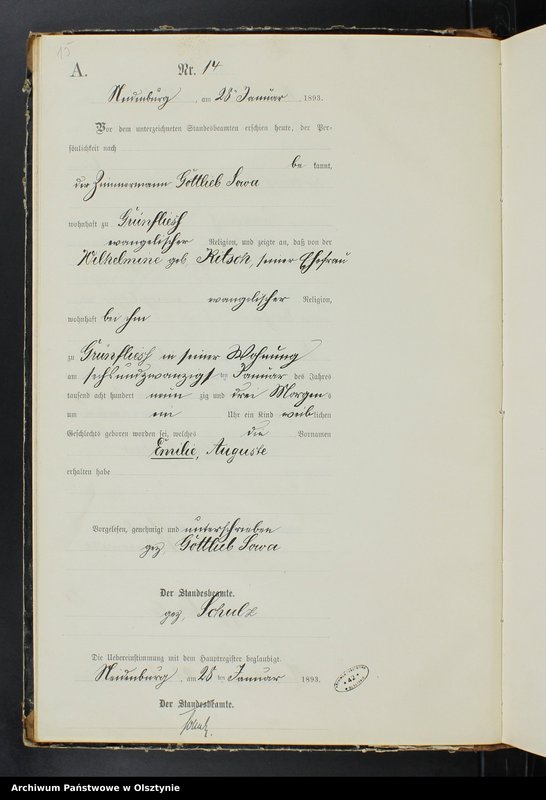 15
A.
Nr. 14
Neidenburg, am 28 ten Januar 1893.
Vor dem unterzeichneten Standesbeamten erschien heute, der Per-
sönlichkeit nach
be kannt,
der Zimmermann Gottlieb Sowa
wohnhaft zu Grünfliess
evangelischer Religion, und zeigte an, daß von der
Wilhelmine geb. Kitsch, seiner Ehefrau
evangelischer Religion,
wohnhaft bei ihm
zu Grünfliess in seiner Wohnung
am sechsundzwanzigsten Januar des Jahres
tausend acht hundert neun zig und drei Morgens
um ein Uhr ein Kind weiblichen
Geschlechts geboren worden sei, welches die Vornamen
Emilie, Auguste
erhalten habe
Vorgelesen, genehmigt und unterschrieben
gez Gottlieb Sowa
Der Standesbeamte.
gez. Schulz
Die Uebereinstimmung mit dem Hauptregister beglaubigt.
Neidenburg, am 28 ten Januar 1893.
Der Standesbeamte.
42
Archiwum Państwowe w Olsztynie